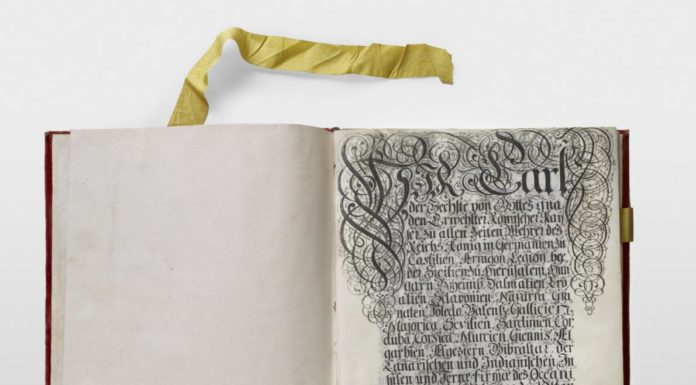 WIR Carl
der Sechste von Gottes gna
den Erwehlter Römischer Kay
ser zu allen Zeiten Mehrer des
Reichs, König in Germanien zu
Castilien, Arragon, Legion, bey
der Sicilien zu Hierusalem, Hun
garn, Dalmatien, Cro
atien, Sclavonien, Navarra, Gra
naten, Toledo, Valentz, Gallicien,
Majorica, Sevilien, Sardinien, Cor
duba, Corsica, Murcien, Giennis, Al
garbien, Algeziern, Gibraltar, der
Canarischen und Indianischen In
sulen und Terrae firmae des Oceani